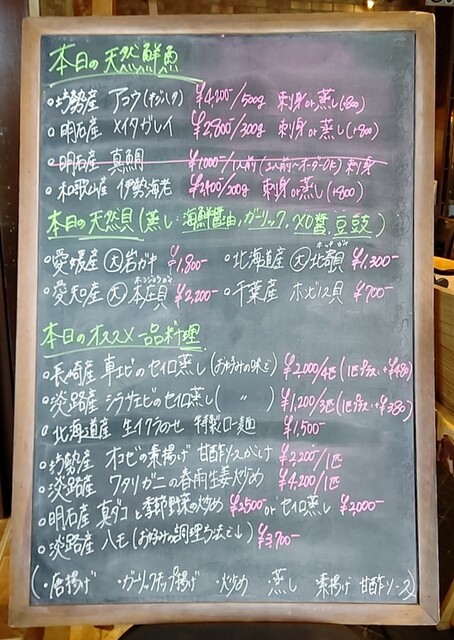 本日の天然鮮魚
・坊勢産 アコウ(キジハタ) ¥4,200-/500g 刺身or蒸し(+800)
・明石産 メイタガレイ ¥2,800-/300g 刺身or蒸し(+800)
・明石産 真鯛 ¥1,000-/1人前(2人前〜オーダーOK) 刺身
・和歌山産 伊勢海老 ¥2,400-/300g 刺身or蒸し(+800)
本日の天然貝(蒸し:海鮮醤油,ガーリック,XO醤,豆豉)
・愛媛産 大 岩ガキ ¥1,800- ・北海道産 大 北寄貝 ¥1,300-
・愛知産 大 本庄貝 ¥2,200- ・千葉産 ホンビノス貝 ¥700-
本日のオススメ一品料理
・長崎産 車エビのセイロ蒸し(お好みの味で) ¥2,000/4匹(1匹プラス・+¥480)
・淡路産 シラサエビのセイロ蒸し( 〃 ) ¥1,200/3匹(1匹プラス・+¥380)
・北海道産 生イクラのせ 特製ロー麺 ¥1,500-
・坊勢産 オコゼの素揚げ 甘酢ソースがけ ¥2,200/1匹
・淡路産 ワタリガニの春雨生姜炒め ¥4,200/1匹
・明石産 真ダコと季節野菜の炒め ¥2500 or セイロ蒸し ¥2,000-
・淡路産 ハモ(お好みの調理方法で↓) ¥3,700-
(・唐揚げ ・ガーリックチップ揚げ ・炒め ・蒸し 素揚げ 甘酢ソース)